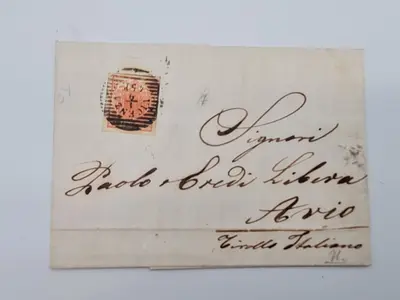 Signori
Paolo e Eredi Libera
Avio
Tirollo Italiano